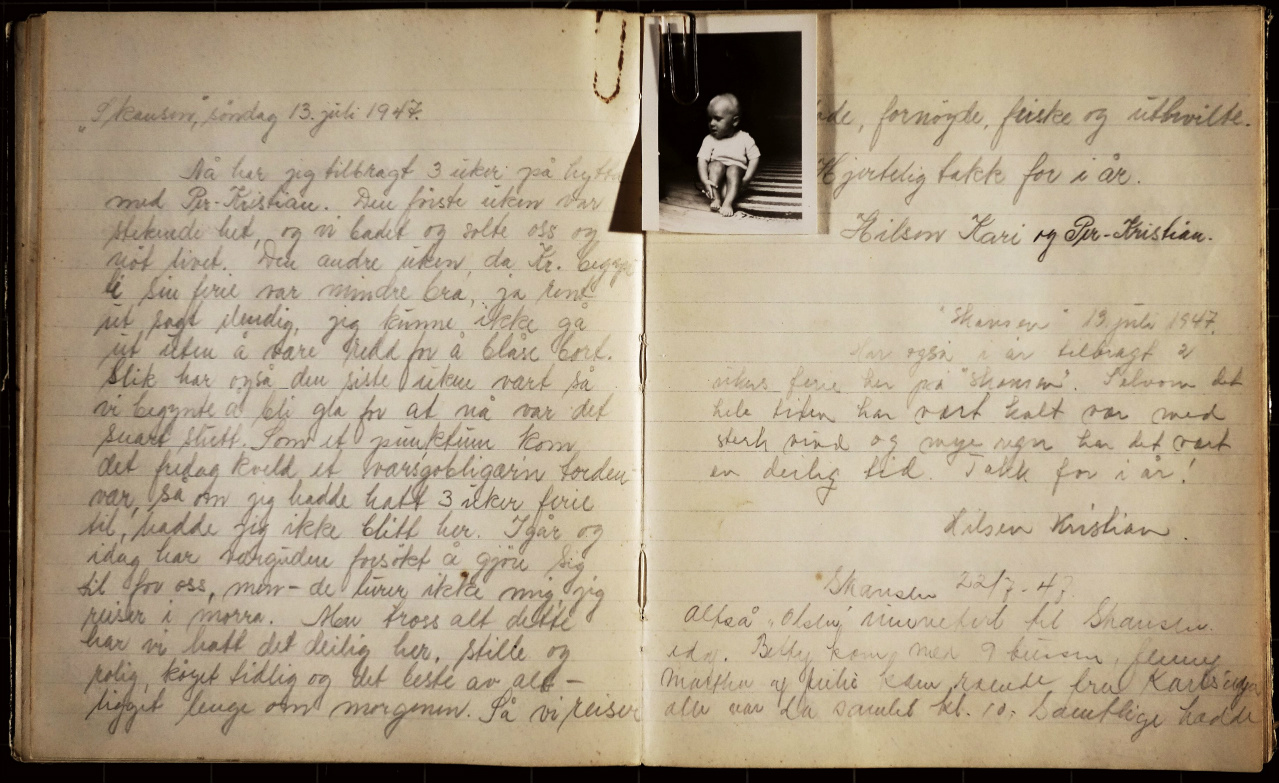 "Skansen", søndag 13. juli 1947.
Nå har jeg tilbragt 3 uker på hytta
med Per-Kristian. Den første uken var
stekende het, og vi badet og solte oss og
nøt livet. Den andre uken, da Kr. begynte
sin ferie var mindre bra, ja rent
ut sagt elendig, jeg kunne ikke gå
ut uten å være redd for å blåse bort.
Slik har også den siste uken vært så
vi begynte å bli gla for at nå var det
snart slutt. Som et punktum kom
det fredag kveld et torden-
vær, så om jeg hadde hatt 3 uker ferie
til, hadde jeg ikke blitt her. Igår og
idag har værguden forsøkt å gjøre sig
til for oss, men - de lurer ikke mig, jeg
reiser i morra. Men tross alt dette
har vi hatt det deilig her, stille og
rolig, køyet tidlig og det beste av alt -
ligget lenge om morgenen. Så vi reiser
fornøyde, friske og uthvilte.
Hjertelig takk for i år.
Hilsen Kari og Per-Kristian.
"Skansen" 13 juli 1947.
Har også i år tilbragt 2
ukers ferie her på "Skansen". Selvom det
hele tiden har vært kalt vær med
sterk vind og mye regn har det vært
en deilig tid. Takk for i år!
Hilsen Kristian.
Skansen 22/7-47
Altså "Olsen" til Skansen
idag. Betty kom med 9 bussen, Jenny
Martha og kom roende fra
alle var da samlet kl. 10. Samtlige hadde